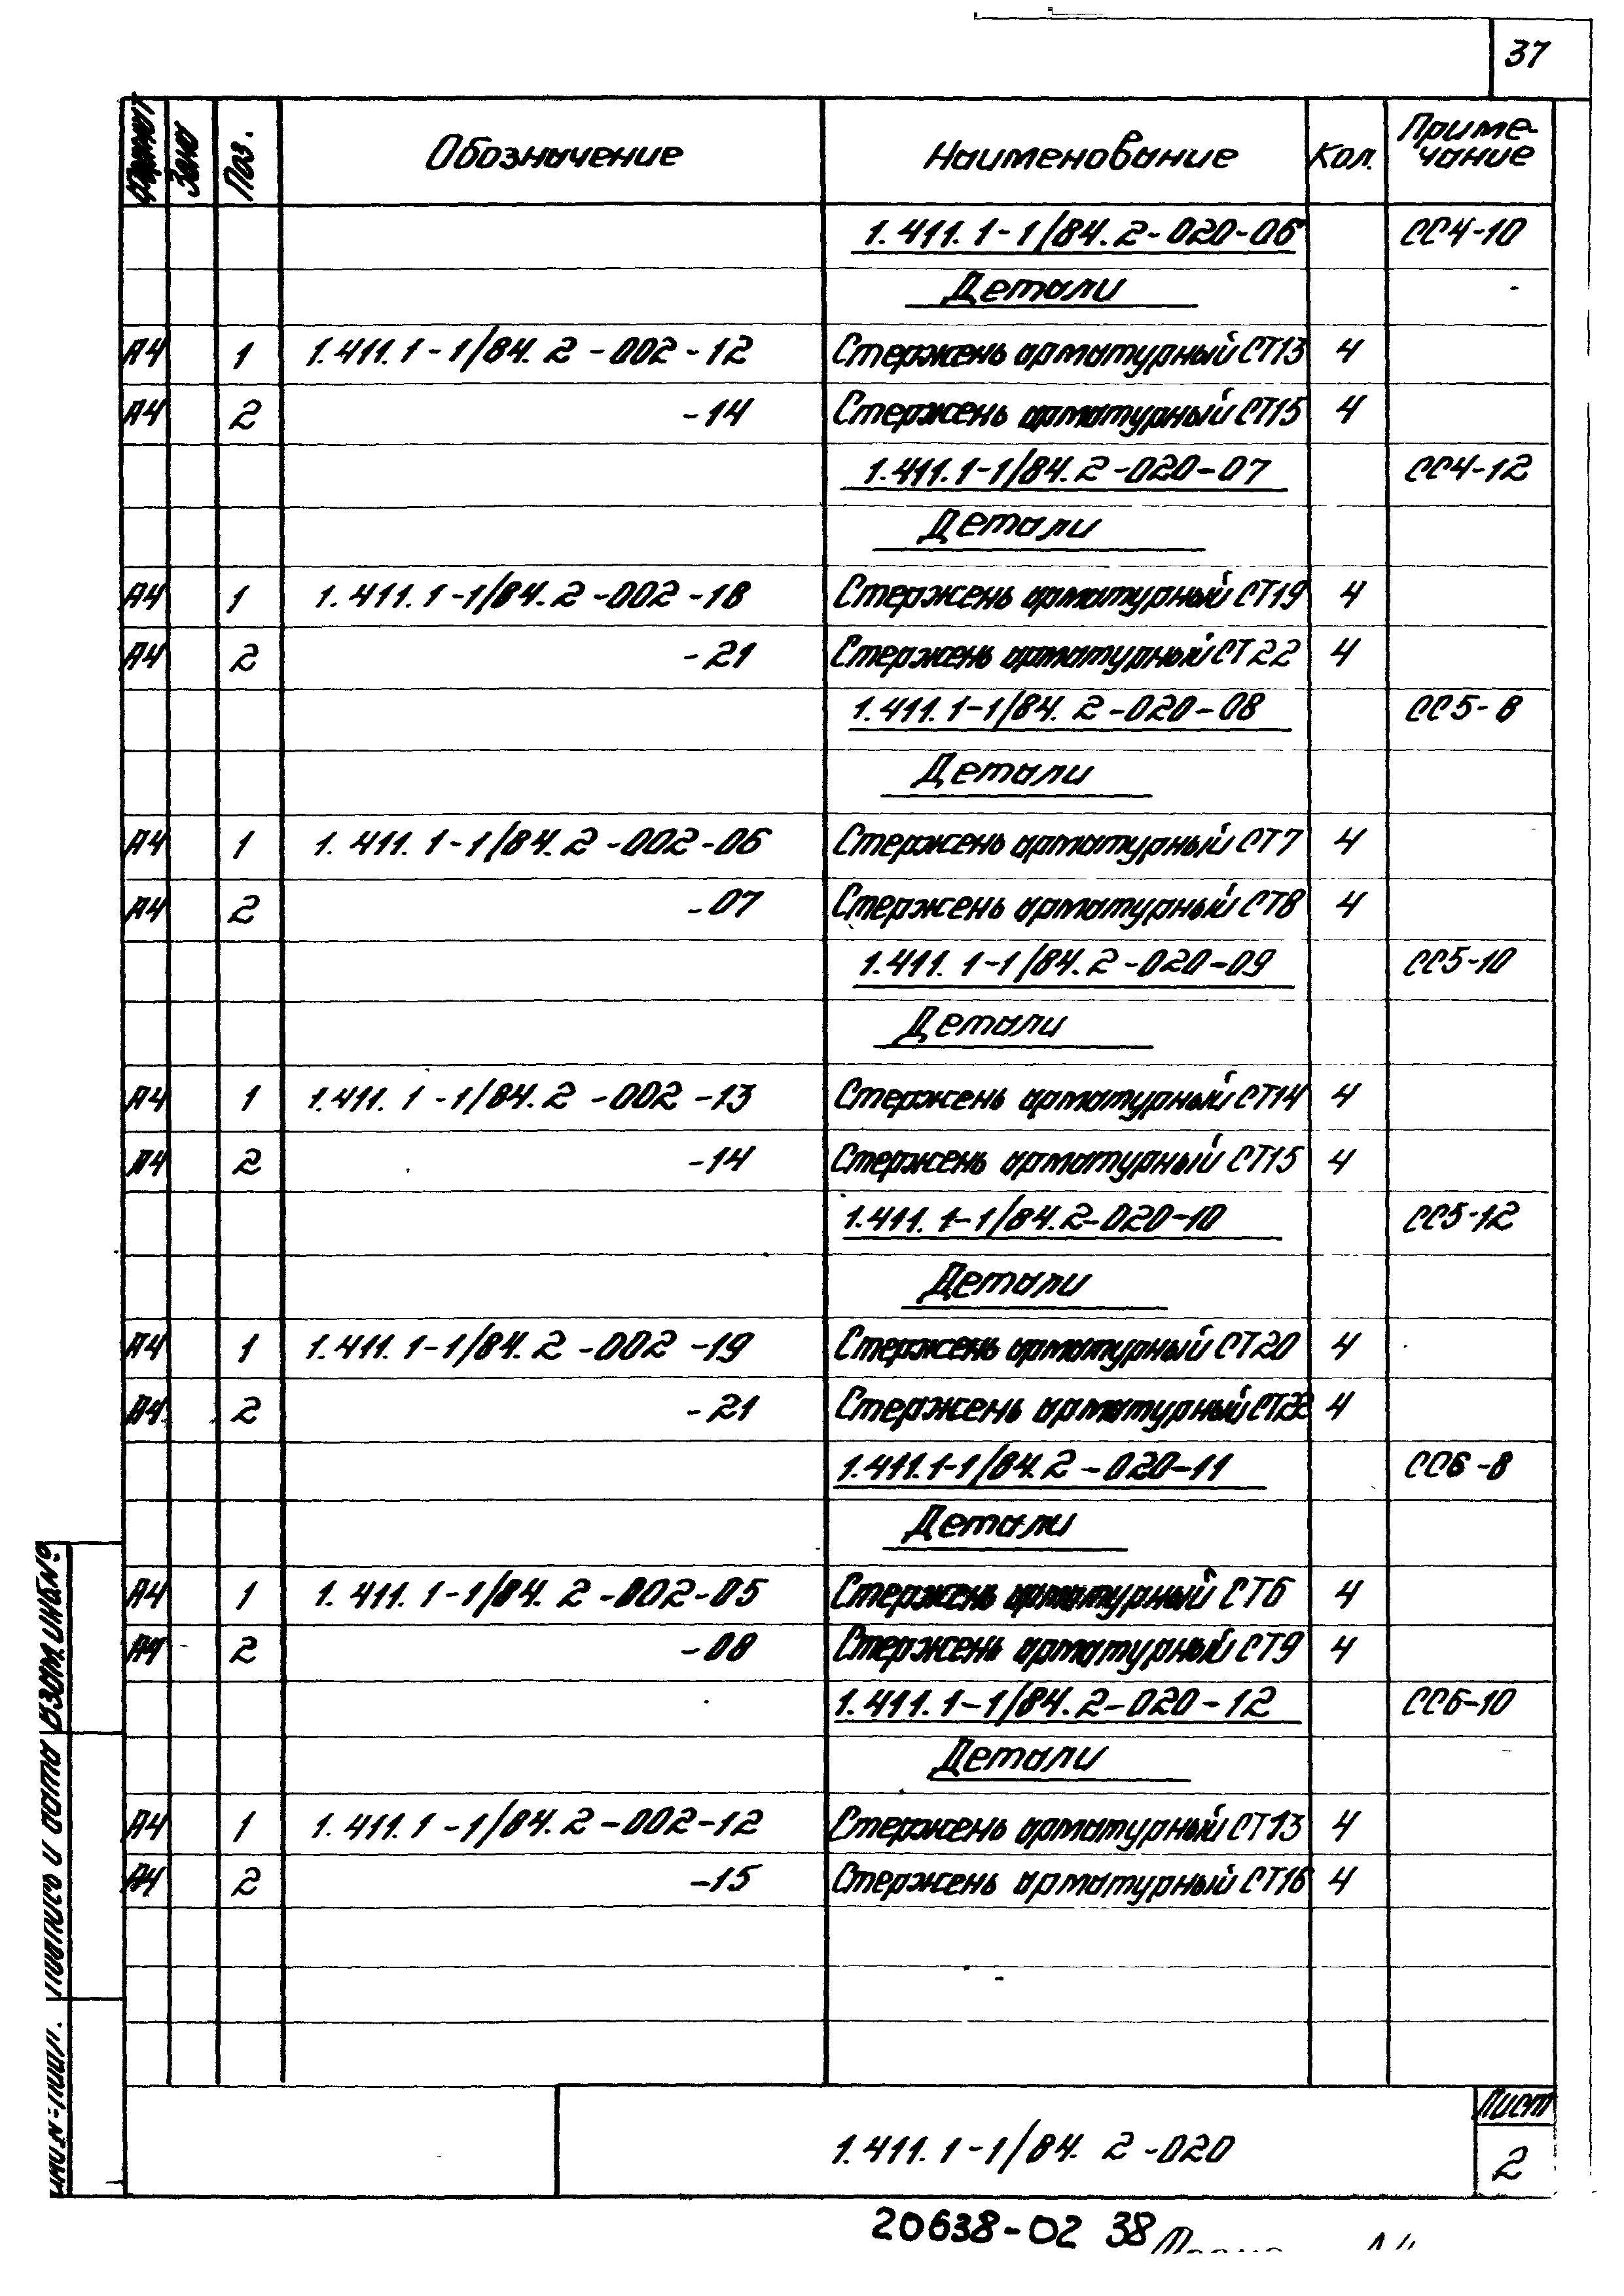 37
Формат Зона Поз. Обозначение Наименование Кол. Приме-
чание
1.411.1-1/84.2-020-06 СС4-10
Детали
А4 1 1.411.1-1/84.2-002-12 Стержень арматурный СТ13 4
А4 2 -14 Стержень арматурный СТ15 4
1.411.1-1/84.2-020-07 СС4-12
Детали
А4 1 1.411.1-1/84.2-002-18 Стержень арматурный СТ19 4
А4 2 -21 Стержень арматурный СТ22 4
1.411.1-1/84.2-020-08 СС5-8
Детали
А4 1 1.411.1-1/84.2-002-06 Стержень арматурный СТ7 4
А4 2 -07 Стержень арматурный СТ8 4
1.411.1-1/84.2-020-09 СС5-10
Детали
А4 1 1.411.1-1/84.2-002-13 Стержень арматурный СТ14 4
А4 2 -14 Стержень арматурный СТ15 4
1.411.1-1/84.2-020-10 СС5-12
Детали
А4 1 1.411.1-1/84.2-002-19 Стержень арматурный СТ20 4
А4 2 -21 Стержень арматурный СТ22 4
1.411.1-1/84.2-020-11 СС6-8
Детали
А4 1 1.411.1-1/84.2-002-05 Стержень арматурный СТ6 4
А4 2 -08 Стержень арматурный СТ9 4
1.411.1-1/84.2-020-12 СС6-10
Детали
А4 1 1.411.1-1/84.2-002-12 Стержень арматурный СТ13 4
А4 2 -15 Стержень арматурный СТ16 4
Взам.инв.№
Подпись и дата
Инв.№ подл.
1.411.1-1/84.2-020
Лист
2
20638-02 38